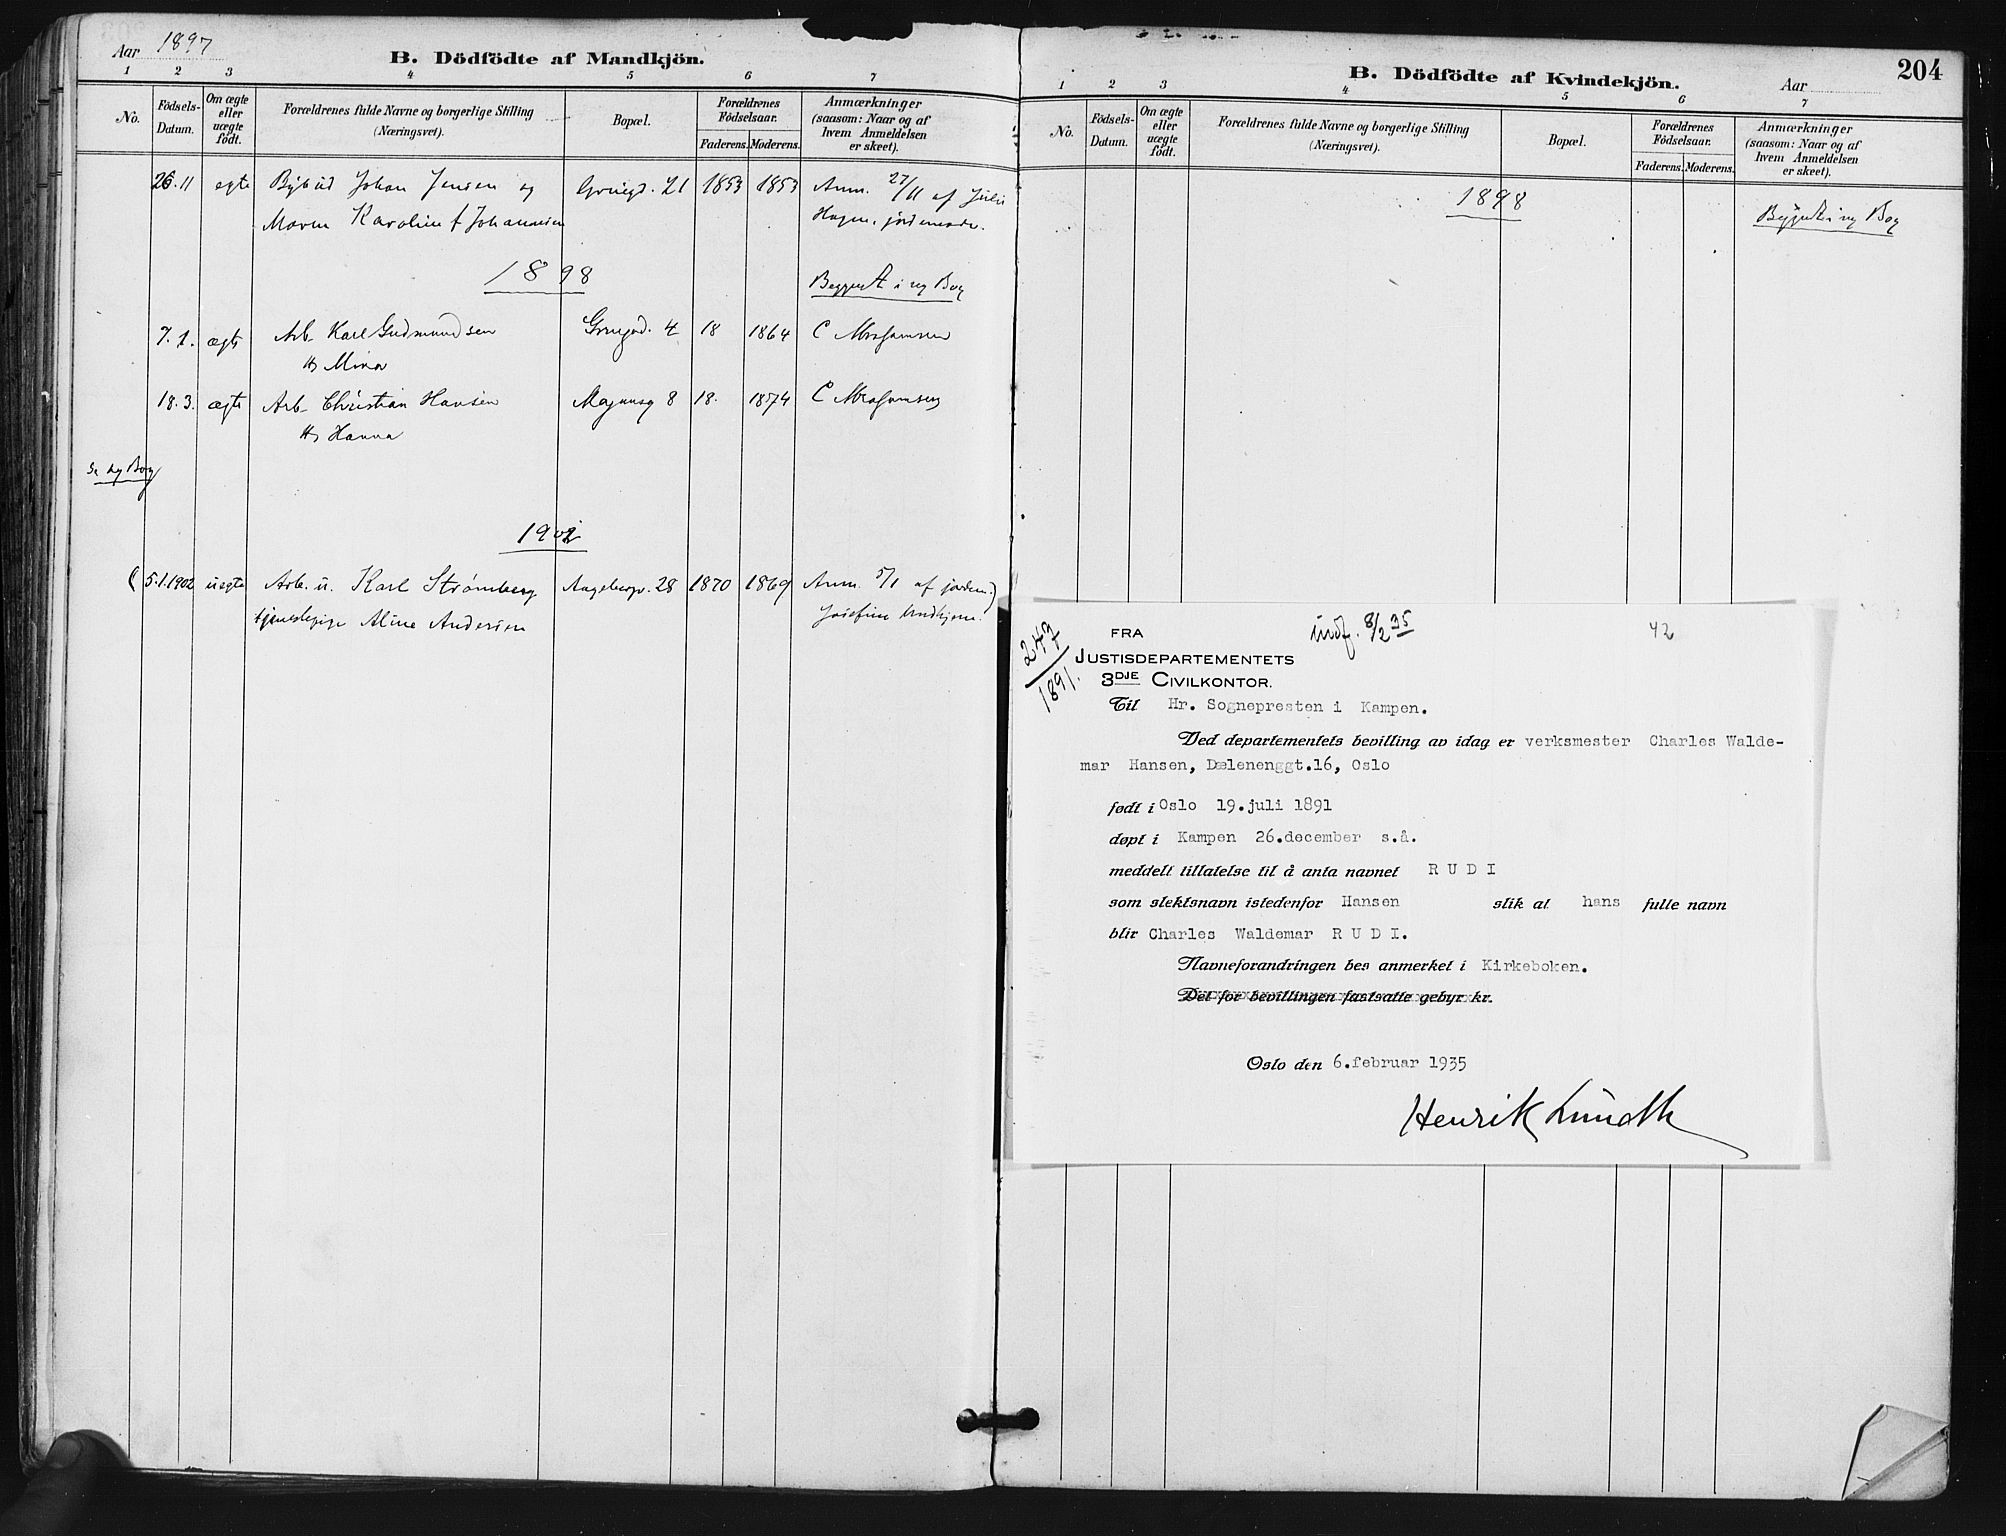 Aar 1897
B. Dödfödte af Mandkjön.
1 2 3 4 5 6 7
No.
Födsels-
Datum.
Om ægte
eller
uægte
födt.
Forældrenes fulde Navne og borgerlige Stilling
(Næringsvei).
Bopæl.
Forældrenes
Födselsaar.
Faderens. Moderens.
Anmærkninger
(saasom: Naar og af
hvem Anmeldelsen
er skeet).
26.11 egte Bybud Johan Jensen og 21 1853 1853 Anm. 27/11 af Julie
Karoline f Johannesen Hagen, jordemoder.
1898 i ny Bog
7.1. ægte Arb. Karl Gudmundsen 4 18 1864 C Abrahamsen
H. Mina
18.3. ægte Arb. Christian Hansen 8 18. 1874 C Abrahamsen
H. Hanna
Se ny Bog
1902
(5.1.1902 uegte Arb. u. Karl Strømberg 28 1870 1869 Anm. 5/1 af jordem.)
tjenestepige Aline Andersen Josefine
204
B. Dödfödte af Kvindekjön.
Aar
1 2 3 4 5 6 7
No.
Födsels-
Datum.
Om ægte
eller
uægte
födt.
Forældrenes fulde Navne og borgerlige Stilling
(Næringsvei).
Bopæl.
Forældrenes
Födselsaar.
Faderens. Moderens.
Anmærkninger
(saasom: Naar og af
hvem Anmeldelsen
er skeet).
1898
i ny Bog
247/1891.
indf. 8/2 35
42
FRA
JUSTISDEPARTEMENTETS
3DJE CIVILKONTOR.
Til Hr. Sognepresten i Kampen.
Ved departementets bevilling av idag er verksmester Charles Walde-
mar Hansen, Dælenenggt.16, Oslo
født i Oslo 19.juli 1891
døpt i Kampen 26.december s.å.
meddelt tillatelse til å anta navnet R U D I
som slektsnavn istedenfor Hansen slik at hans fulle navn
blir Charles Waldemar R U D I.
Navneforandringen bes anmerket i Kirkeboken.
Det for bevillingen fastsatte gebyr kr.
Oslo den 6.februar 1935
Henrik Lundh